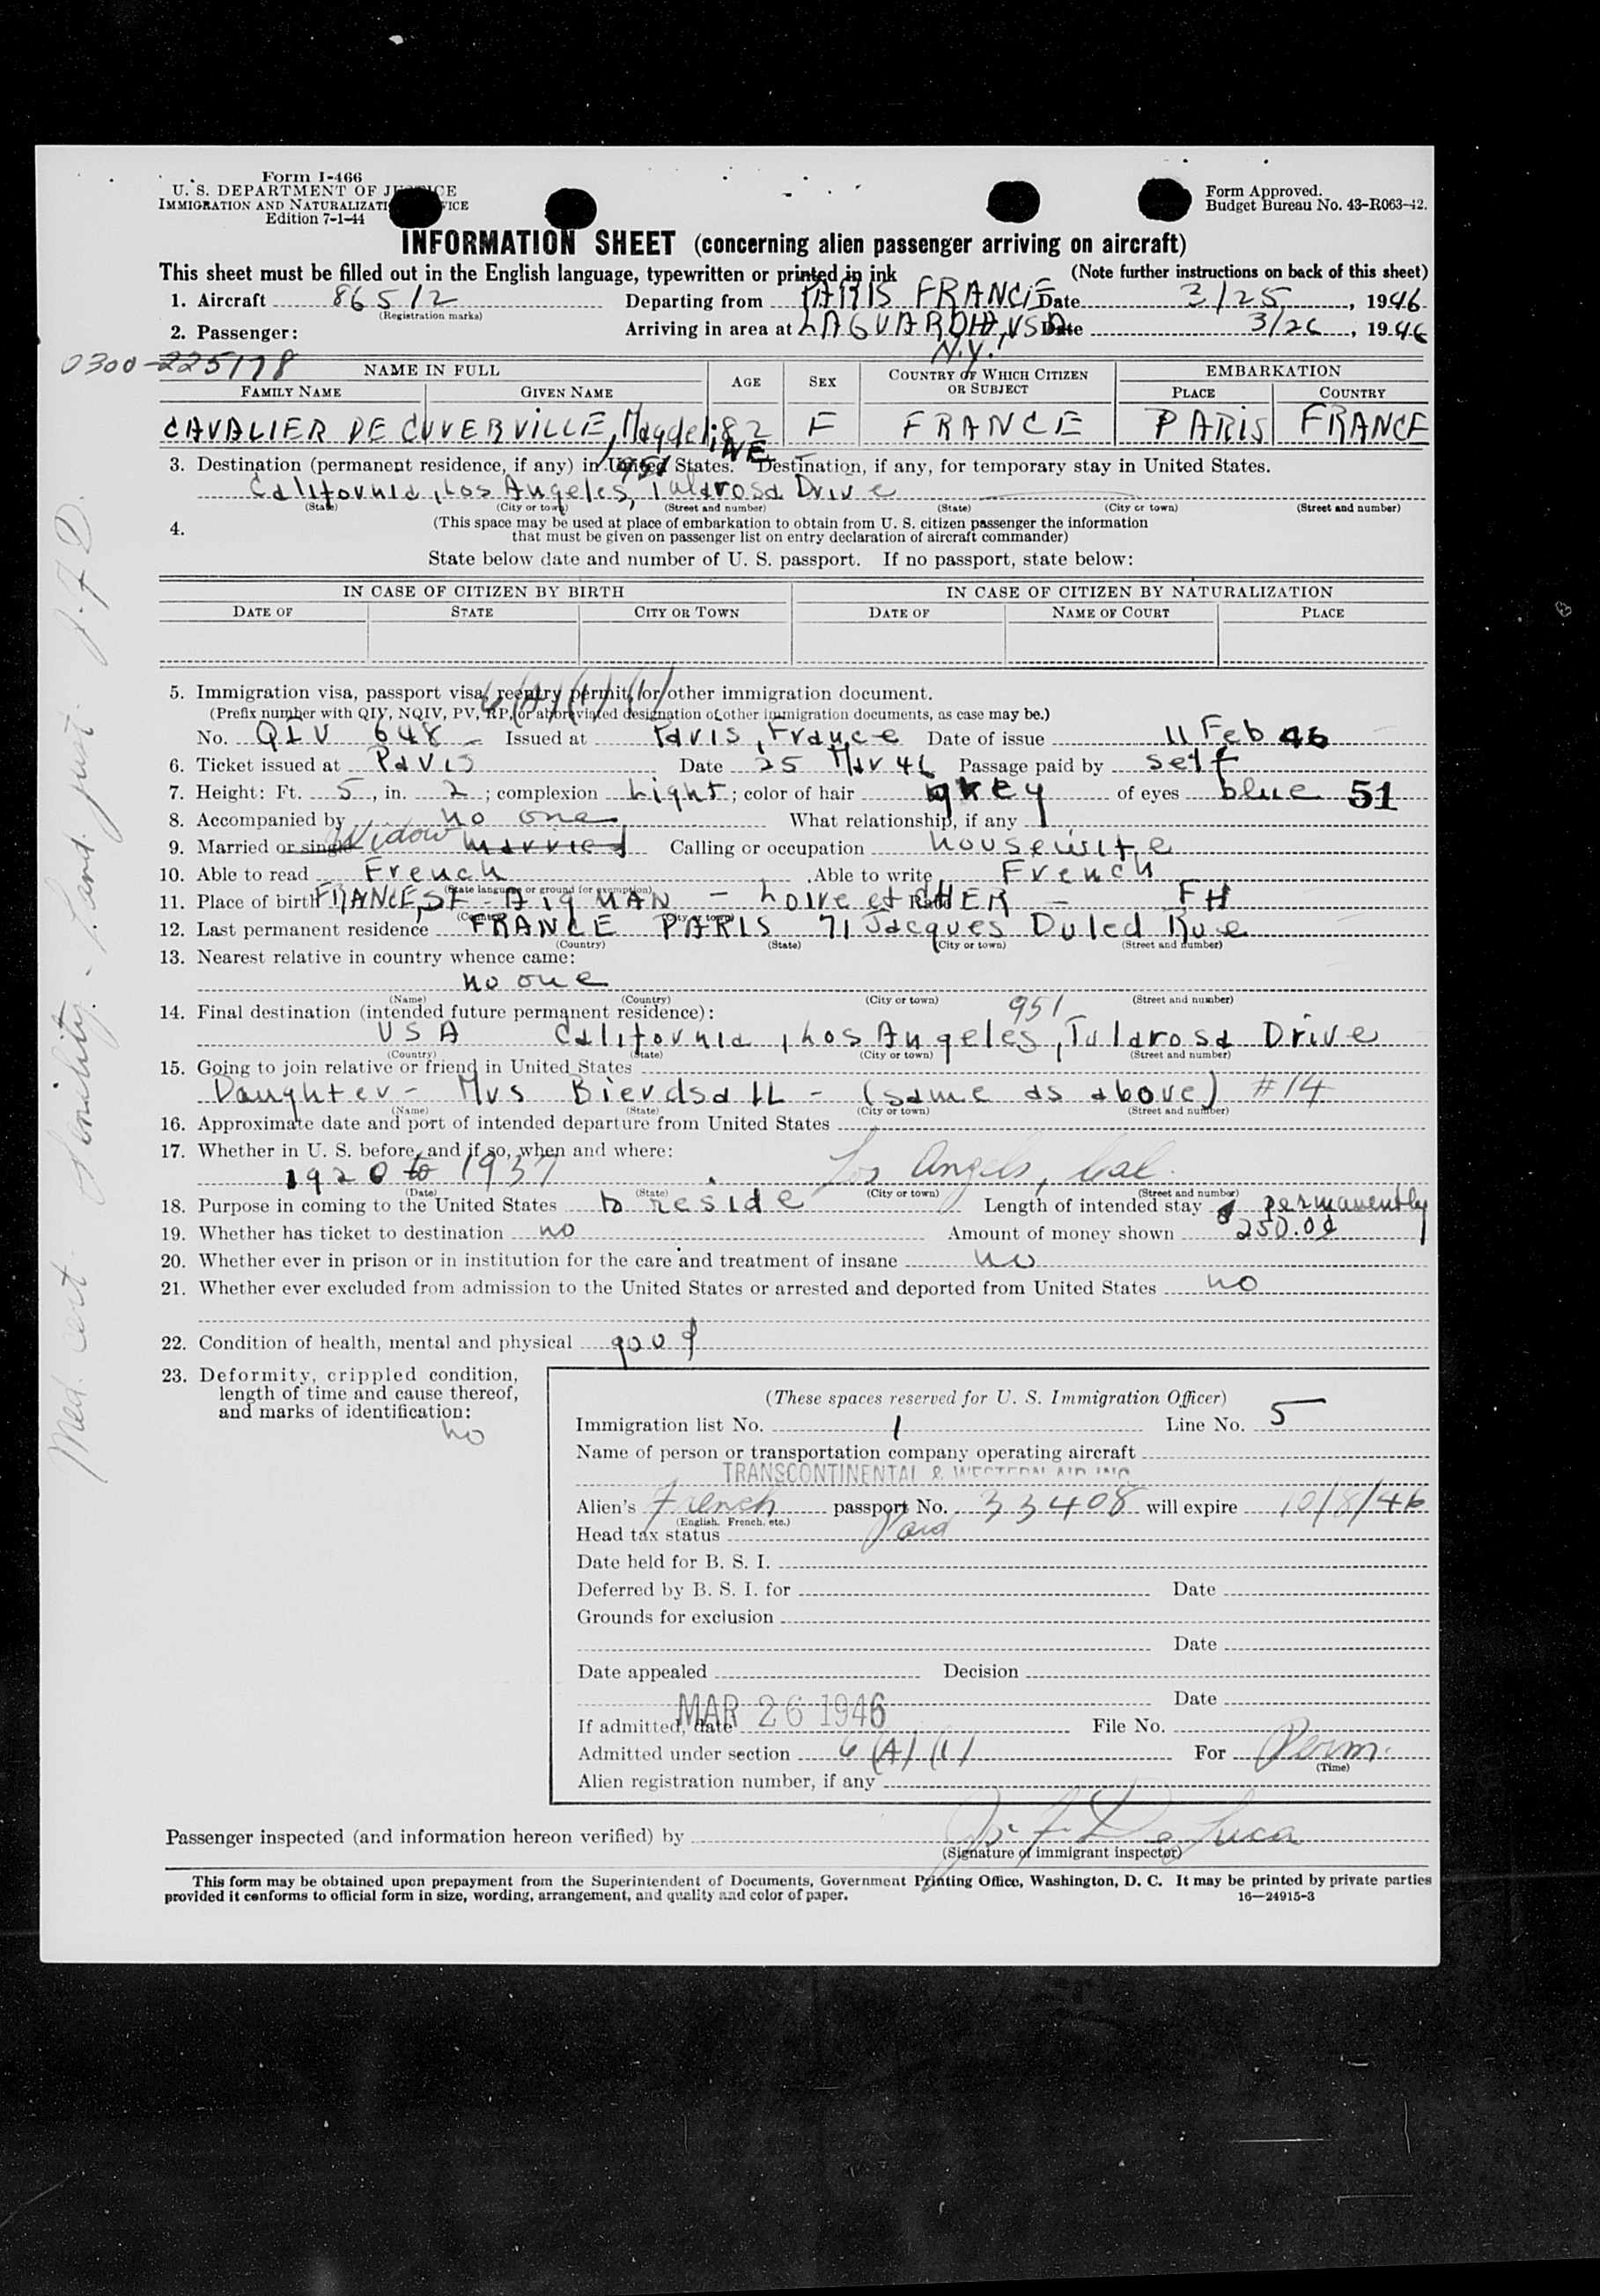 Form I-466
U. S. DEPARTMENT OF JUSTICE
IMMIGRATION AND NATURALIZATION SERVICE
Edition 7-1-44
Form Approved.
Budget Bureau No. 43-R063-42.
INFORMATION SHEET (concerning alien passenger arriving on aircraft)
This sheet must be filled out in the English language, typewritten or printed in ink (Note further instructions on back of this sheet)
1. Aircraft 86512 Departing from PARIS FRANCE Date 3/25, 1946
(Registration marks)
2. Passenger: Arriving in area at LAGUARDIA, USA Date 3/26, 1946
N.Y.
0300-225178
NAME IN FULL AGE SEX COUNTRY OF WHICH CITIZEN OR SUBJECT EMBARKATION
FAMILY NAME GIVEN NAME PLACE COUNTRY
CAVALIER DE CUVERVILLE, MagdelINE 82 F FRANCE PARIS FRANCE
3. Destination (permanent residence, if any) in United States. Destination, if any, for temporary stay in United States.
951
California, Los Angeles, Tularosa Drive
(State) (City or town) (Street and number) (State) (City or town) (Street and number)
4. (This space may be used at place of embarkation to obtain from U. S. citizen passenger the information
that must be given on passenger list on entry declaration of aircraft commander)
State below date and number of U. S. passport. If no passport, state below:
IN CASE OF CITIZEN BY BIRTH IN CASE OF CITIZEN BY NATURALIZATION
DATE OF STATE CITY OR TOWN DATE OF NAME OF COURT PLACE
6(A)(1)
5. Immigration visa, passport visa, reentry permit, or other immigration document.
(Prefix number with QIV, NQIV, PV, RP, or abbreviated designation of other immigration documents, as case may be.)
No. QIV 648 Issued at Paris, France Date of issue 11 Feb 46
6. Ticket issued at Paris Date 25 Mar 46 Passage paid by self
7. Height: Ft. 5, in. 2; complexion Light; color of hair grey of eyes blue 51
8. Accompanied by no one What relationship, if any
9. Married or single Widow married Calling or occupation housewife
10. Able to read French, Able to write French
(State language or ground for exemption)
11. Place of birth FRANCE, ST - Aig MAN - Loire et CHER - FH
(Country) (City or town)
12. Last permanent residence FRANCE PARIS 71 Jacques Duled Rue
(Country) (State) (City or town) (Street and number)
13. Nearest relative in country whence came:
no one
(Name) (Country) (City or town) (Street and number)
14. Final destination (intended future permanent residence): 951
USA California, Los Angeles, Tularosa Drive
(Country) (State) (City or town) (Street and number)
15. Going to join relative or friend in United States
Daughter - Mrs BierdsaLL - (same as above) #14
(Name) (State) (City or town) (Street and number)
16. Approximate date and port of intended departure from United States
17. Whether in U. S. before, and if so, when and where:
1920 to 1937 Los Angels, Cal.
(Date) (State) (City or town) (Street and number)
18. Purpose in coming to the United States to reside Length of intended stay permanently
19. Whether has ticket to destination no Amount of money shown $250.00
20. Whether ever in prison or in institution for the care and treatment of insane no
21. Whether ever excluded from admission to the United States or arrested and deported from United States no
22. Condition of health, mental and physical good
23. Deformity, crippled condition,
length of time and cause thereof,
and marks of identification:
no
(These spaces reserved for U. S. Immigration Officer)
Immigration list No. 1 Line No. 5
Name of person or transportation company operating aircraft
TRANSCONTINENTAL & WESTERN AIR INC
Alien's French passport No. 33408 will expire 10/8/46
(English, French, etc.)
Head tax status Paid
Date held for B. S. I.
Deferred by B. S. I. for Date
Grounds for exclusion
Date
Date appealed Decision
Date
If admitted, date MAR 26 1946 File No.
Admitted under section 6(A)(1) For Perm.
(Time)
Alien registration number, if any
Passenger inspected (and information hereon verified) by Jos F De Luca
(Signature of immigrant inspector)
This form may be obtained upon prepayment from the Superintendent of Documents, Government Printing Office, Washington, D. C. It may be printed by private parties
provided it conforms to official form in size, wording, arrangement, and quality and color of paper. 16—24915-3
Med. Cert. Senility. J.F.D.